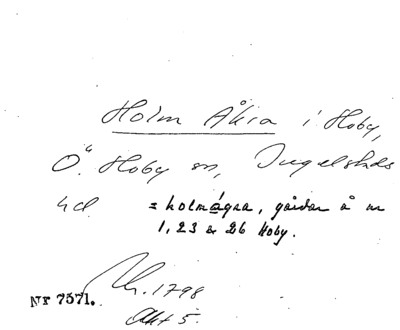 Holm Åkra i Hoby,
Ö. Hoby sn, Ingelstads
hd = holmågra, gårdar å nr
1, 23 & 26 Hoby.
Nr 7571. 1798
Akt 5.